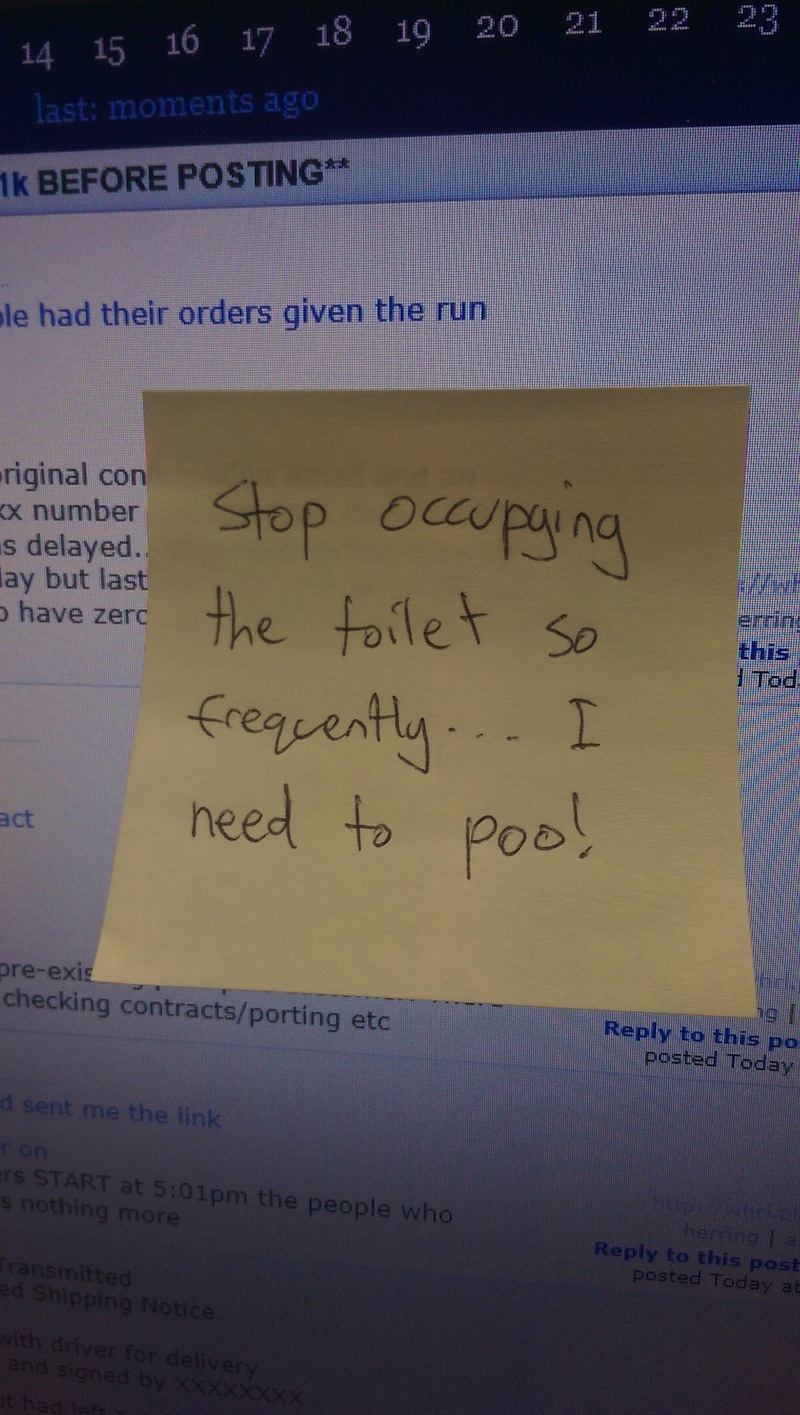 14 15 16 17 18 19 20 21 22 23
last: moments ago
1k BEFORE POSTING**
had their orders given the run
Stop occupying
the toilet so
frequently... I
need to poo!
riginal con
number
delayed..
but last
have zero
this
Tod
act
pre-exis
checking contracts/porting etc
Reply to this po
posted Today
sent me the link
on
START at 5:01pm the people who
nothing more
http://whrl.pl
herring | a
Reply to this post
posted Today at
Transmitted
ed Shipping Notice
with driver for delivery
and signed by XXXXXXXX
had left